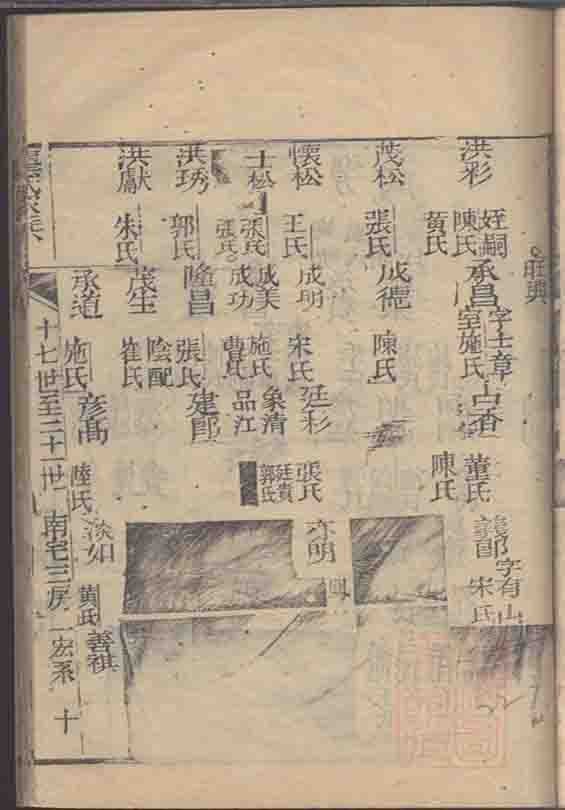 旺興
洪彩 陳氏 黃氏
姪嗣承昌 字士章 室施氏
占香 董氏 陳氏
字有山 宋氏
茂松 張氏
成德 陳氏
懷松 王氏
成明 宋氏
廷杉 張氏
亦明
士松 張氏 張氏
成美 施氏
成功 曹氏
象清 廷貴 郭氏
品江
洪琇 郭氏
隆昌 張氏
建郎
洪獻 朱氏
茂生 陰配崔氏
承道 施氏
彥高 陸氏
淡如 黃氏
善祺
十七世至二十一世 南宅三房 一宏系 十